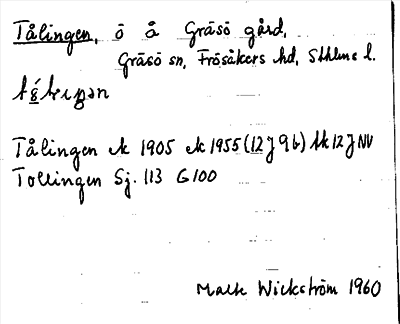 Tålingen, ö å Gräsö gård,
Gräsö sn, Frösåkers hd, Sthlms l.
Tålingen ek 1905 ek 1955 (12 J 9 b) tk 12 J NV
Tollingen Sj. 113 G 100
Malte Wickström 1960